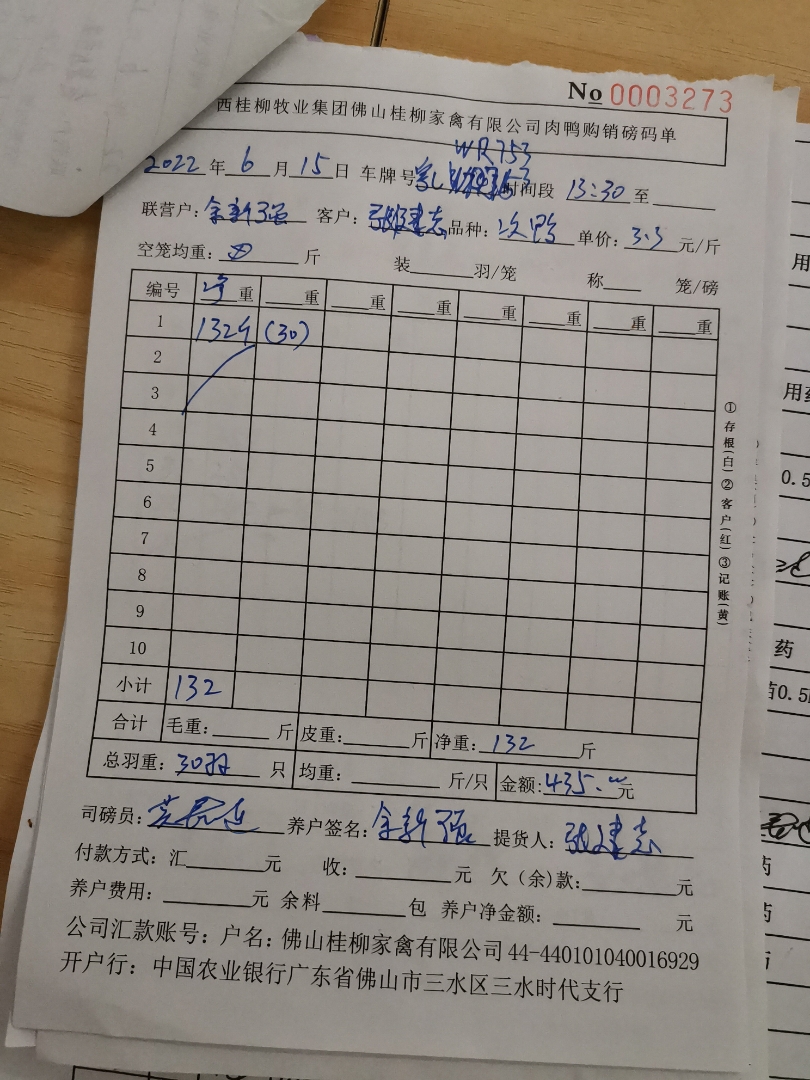 No 0003273
西桂柳牧业集团佛山桂柳家禽有限公司肉鸭购销磅码单
WR753
2022 年 6 月 15 日 车牌号 时间段 13:30 至
联营户: 余新强 客户: 张建志 品种: 次鸭 单价: 3.3 元/斤
空笼均重: 斤 装 羽/笼 称 笼/磅
编号 净重 重 重 重 重 重 重 重
1 132斤 (30)
2
3
4
5
6
7
8
9
10
小计 132
合计 毛重: 斤 皮重: 斤 净重: 132 斤
总羽重: 30羽 只 均重: 斤/只 金额: 435.00 元
司磅员: 养户签名: 余新强 提货人: 张建志
付款方式: 汇 元 收: 元 欠(余)款: 元
养户费用: 元 余料 包 养户净金额: 元
公司汇款账号: 户名: 佛山桂柳家禽有限公司 44-440101040016929
开户行: 中国农业银行广东省佛山市三水区三水时代支行
①存根(白)②客户(红)③记账(黄)
用
用药
0.5
药
苗0.5
药
药